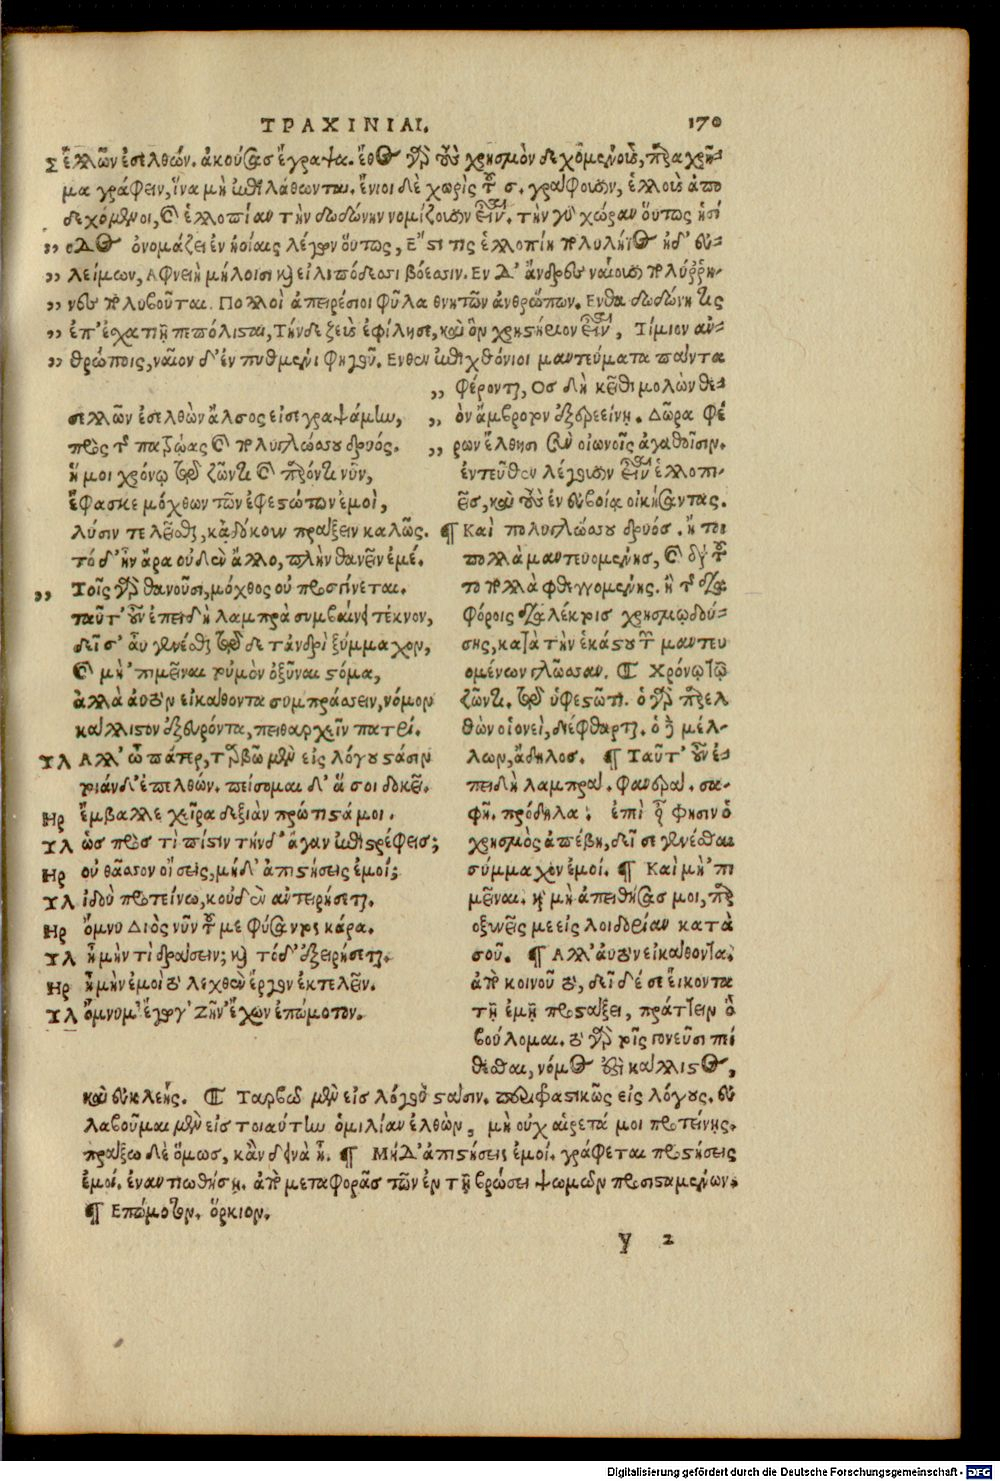 ΤΡΑΧΙΝΙΑΙ. 170
Σελλῶν ἐσελθών. ἀκούσας ἔγραψα. ἔθος γὰρ τοὺς χρησμὸν δεχομένους, παραχρῆ-
μα γράφειν, ἵνα μὴ ἐπιλάθωνται. ἔνιοι δὲ χωρὶς τοῦ σ. γράφουσιν, ἑλλοὺς ἀπο
δεχόμενοι, καὶ ἑλλοπίαν τὴν δωδώνην νομίζουσιν εἶναι. τὴν γὰρ χώραν οὕτως ἡσί
,, οδος ὀνομάζει ἐν ἠοίαις λέγων οὕτως, Ἔστι τις ἑλλοπίη πολυλήϊος ἠδ' εὐ-
,, λείμων, Ἀφνειὴ μήλοισι καὶ εἰλιπόδεσσι βόεσσιν. Ἐν δ' ἄνδρες ναίουσι πολύῤῥη-
,, νες πολυβοῦται. Πολλοὶ ἀπειρέσιοι φῦλα θνητῶν ἀνθρώπων. Ἔνθα δωδώνη τις
,, ἐπ' ἐχατιῇ πεπόλισται, Τήνδε ζεὺς ἐφίλησε, καὶ ὃν χρηστήριον εἶναι, Τίμιον ἀν-
,, θρώποις, ναῖον δ' ἐν πυθμένι φηγοῦ. Ἔνθεν ἐπιχθόνιοι μαντεύματα πάντα
,, φέρονται, Ὃς δὴ κεῖθι μολὼν θε-
,, ὸν ἄμβροτον ἐξερεείνῃ. Δῶρα φέ
,, ρων ἔλθησι σὺν οἰωνοῖς ἀγαθοῖσιν.
ἐντεῦθεν λέγουσιν εἶναι ἑλλοπι-
εῖς, καὶ τοὺς ἐν εὐβοίᾳ οἰκήσαντας.
¶ Καὶ πολυγλώσσου δρυός. ἤτοι
πολλὰ μαντευομένης, καὶ διὰ τοῦτο
πολλὰ φθεγγομένης. ἢ τῆς διαφόροις
φόροις διαλέκτοις χρησμῳδού-
σης, κατὰ τὴν ἑκάστου τῶν μαντευ
ομένων γλῶσσαν. ¶ Χρόνῳ τῷ
ζῶντι. τῷ ὑφεστῶτι. ὁ γὰρ παρελ
θὼν οἱονεὶ, διέφθαρται. ὁ δὲ μέλ-
λων, ἄδηλος. ¶ Ταῦτ' οὖν ἐ-
πειδὴ λαμπρά. φανερά. σα-
φῆ. πρόδηλα. ἐπεὶ οὖν φησιν ὁ
χρησμὸς ἀπέβη, δεῖ σε γενέσθαι
σύμμαχον ἐμοί. ¶ Καὶ μὴ 'πι
μεῖναι. καὶ μὴ ἀπειθήσας μοι, παρ
οξυνεῖς με εἰς λοιδορίαν κατὰ
σοῦ. ¶ Ἀλλ' αὐτὸν εἰκαθόντα.
ἀπὸ κοινοῦ τὸ, δεῖ δέ σε εἴκοντα
τῇ ἐμῇ προστάξει, πράττειν ὃ
βούλομαι. τὸ γὰρ τοῖς γονεῦσι πεί
θεσθαι, νόμος ἐστὶ κάλλιστος,
σελλῶν ἐσελθὼν ἄλσος εἰσεγραψάμην,
πρὸς τῆς πατρῴας καὶ πολυγλώσσου δρυός.
ἥ μοι χρόνῳ τῷ ζῶντι καὶ παρόντι νῦν,
ἔφασκε μόχθων τῶν ἐφεστώτων ἐμοὶ,
λύσιν τελεῖσθαι, κἀδόκουν πράξειν καλῶς.
τὸ δ' ἦν ἄρα οὐδὲν ἄλλο, πλὴν θανεῖν ἐμέ.
,, Τοῖς γὰρ θανοῦσι, μόχθος οὐ προσγίνεται.
ταῦτ' οὖν ἐπειδὴ λαμπρὰ συμβαίνει τέκνον,
δεῖ σ' αὖ γενέσθαι τῷδε τἀνδρὶ ξύμμαχον,
καὶ μὴ 'πιμεῖναι τοὐμὸν ὀξῦναι στόμα,
ἀλλὰ αὐτὸν εἰκαθόντα συμπράσσειν, νόμον
κάλλιστον ἐξευρόντα, πειθαρχεῖν πατρί.
Υλ Ἀλλ' ὦ πάτερ, ταρβῶ μὲν εἰς λόγου στάσιν
τοιάνδ' ἐπελθών. πείσομαι δ' ἅ σοι δοκεῖ.
Ηρ ἔμβαλλε χεῖρα δεξιὰν πρώτιστά μοι.
Υλ ὡς πρὸς τί πίστιν τήνδ' ἄγαν ἐπιστρέφεις;
Ηρ οὐ θᾶσσον οἴσεις, μηδ' ἀπιστήσεις ἐμοί;
Υλ ἰδοὺ προτείνω, κοὐδὲν ἀντειρήσεται.
Ηρ ὄμνυ Διὸς νῦν τοῦ με φύσαντος κάρα.
Υλ ἦ μὴν τί δράσειν; καὶ τόδ' ἐξειρήσεται.
Ηρ ἦ μὴν ἐμοὶ τὸ λεχθὲν ἔργον ἐκτελεῖν.
Υλ ὄμνυμ' ἔγωγ' Ζῆν' ἔχων ἐπώμοτον.
καὶ εὐκλεής. ¶ Ταρβῶ μὲν εἰς λόγου στάσιν. περιφραστικῶς εἰς λόγους. εὐ
λαβοῦμαι μὲν εἰς τοιαύτην ὁμιλίαν ἐλθὼν, μὴ οὐχ αἱρετά μοι προτείνῃς.
πράξω δὲ ὅμως, κἂν δεινὰ ᾖ. ¶ Μὴ δ' ἀπιστήσεις ἐμοί. γράφεται προστήσεις
ἐμοί. ἐναντιωθήσῃ. ἀπὸ μεταφορᾶς τῶν ἐν τῇ βρώσει ψωμῶν προσισταμένων.
¶ Ἐπώμοτον. ὅρκιον.
y 2
Digitalisierung gefördert durch die Deutsche Forschungsgemeinschaft - DFG